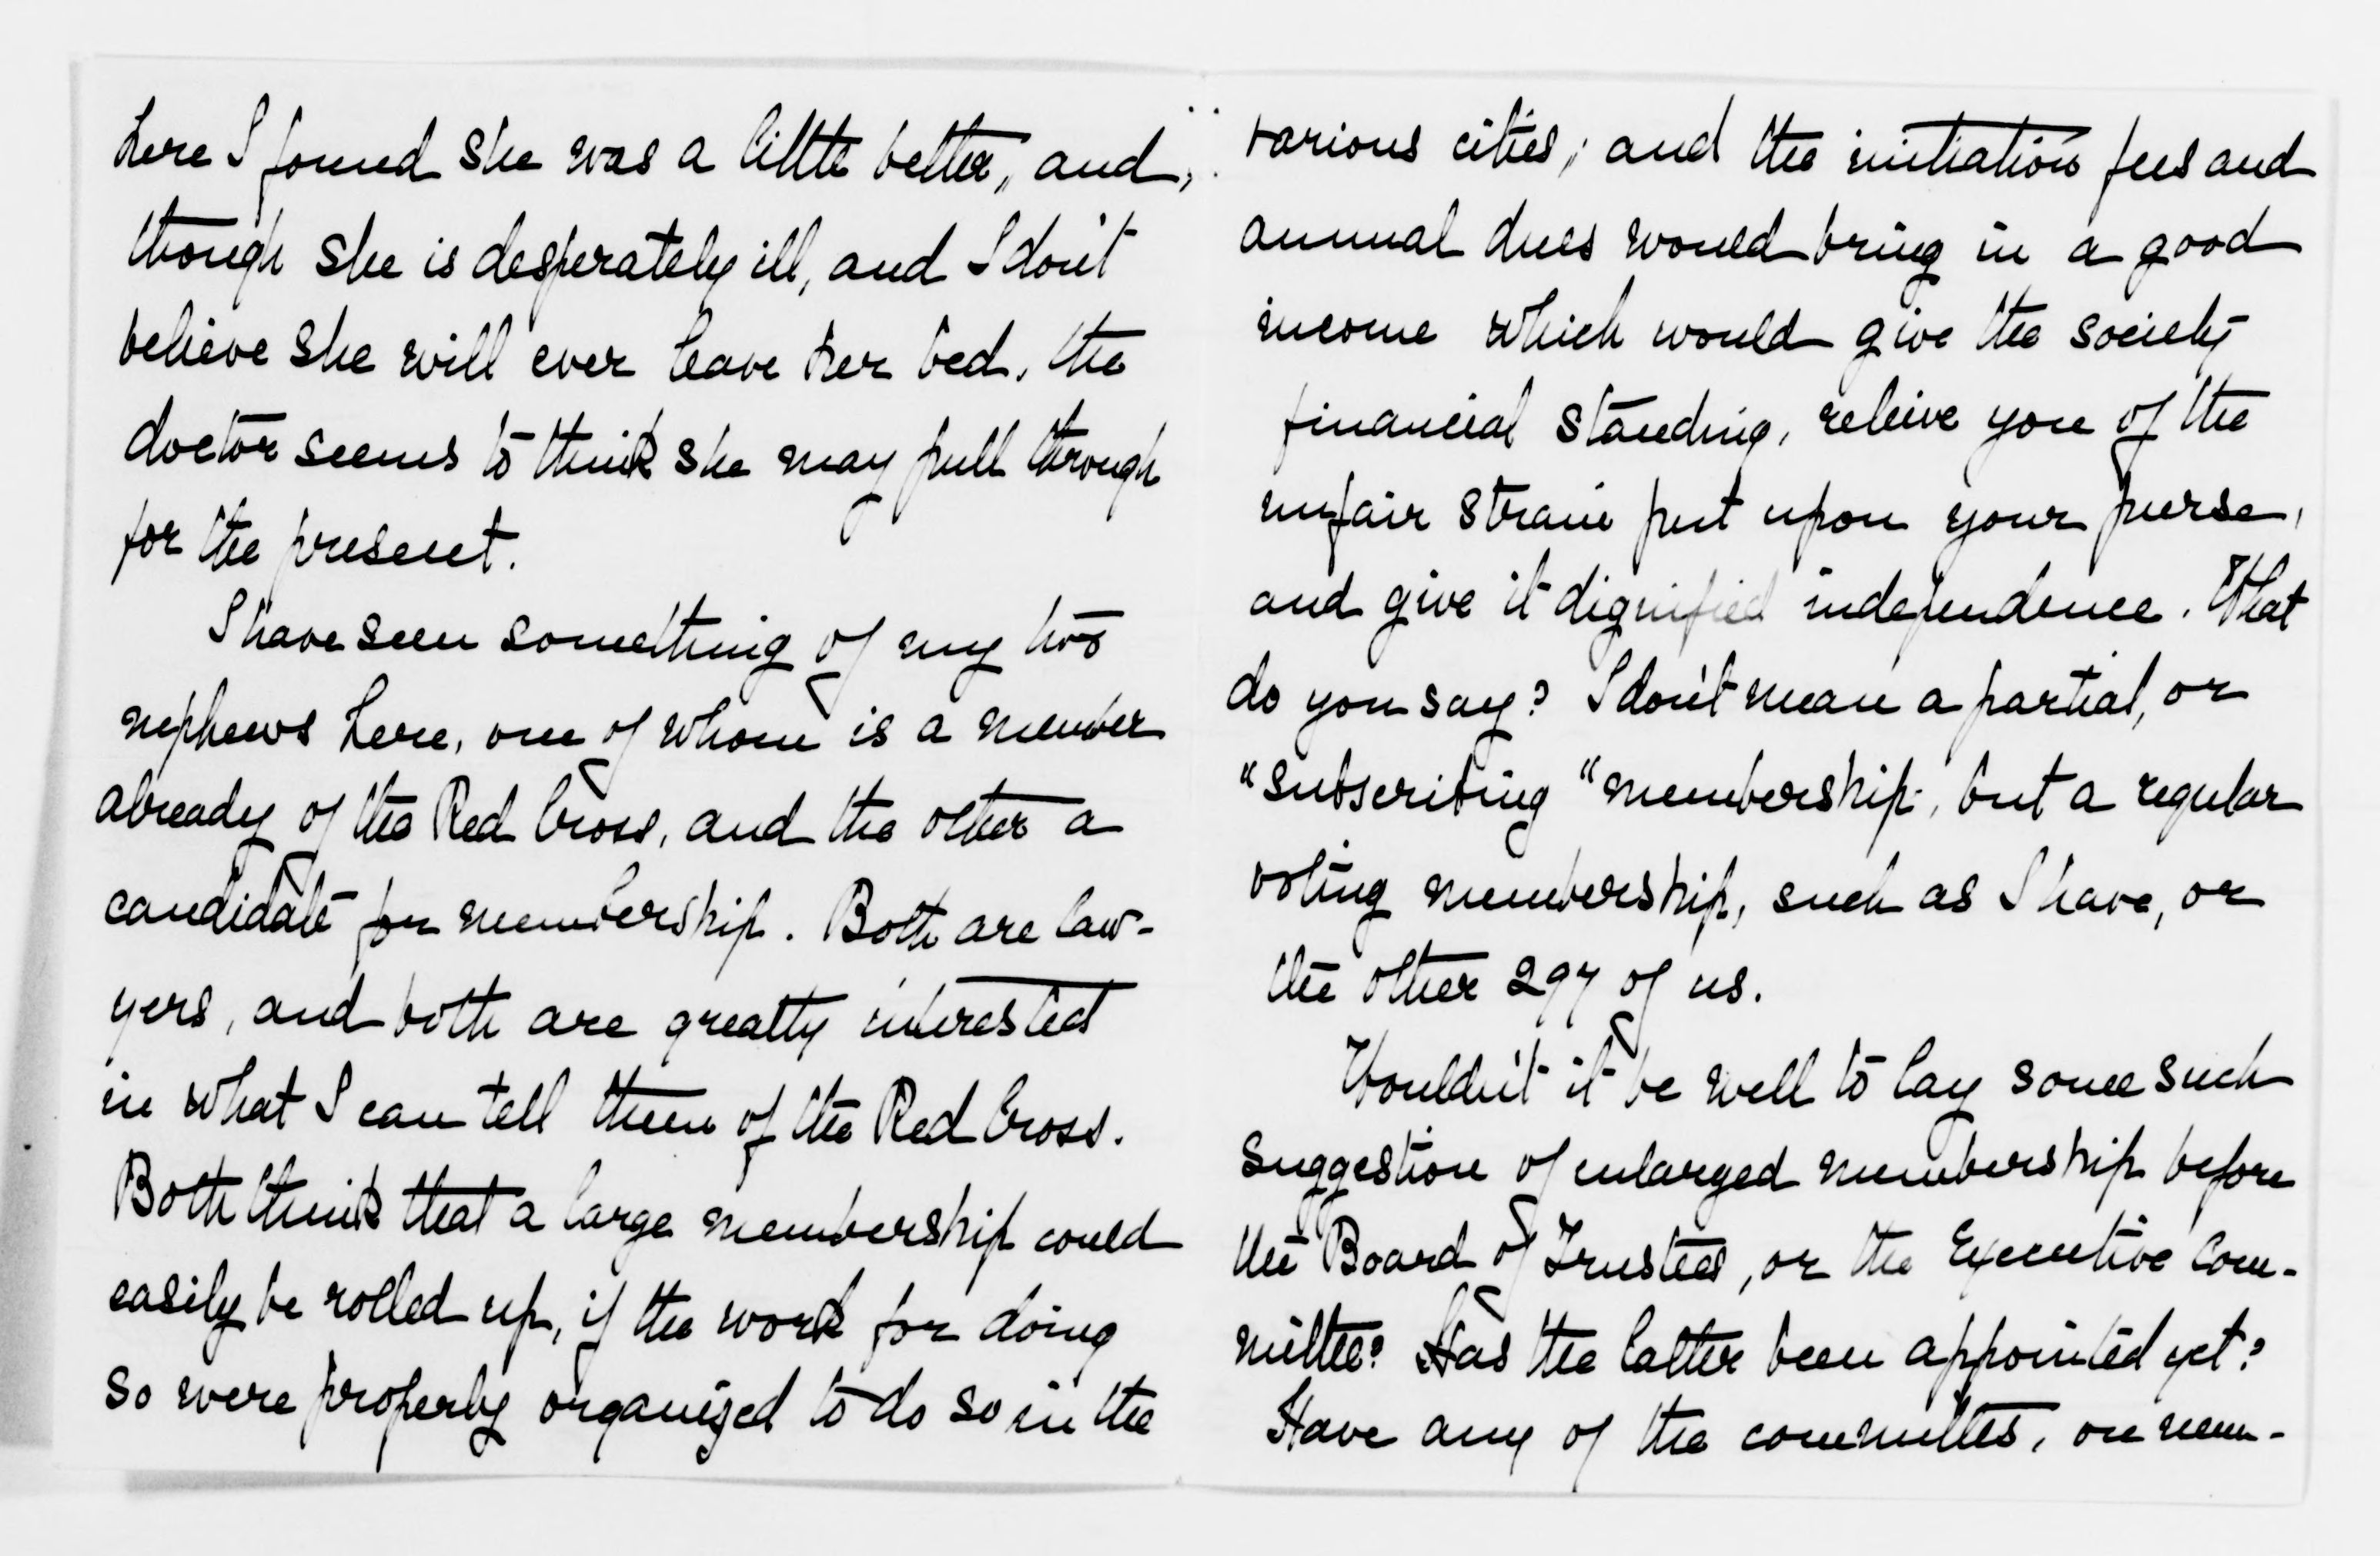 here I found she was a little better, and,
though she is desperately ill, and I don't
believe she will ever leave her bed, the
doctor seems to think she may pull through
for the present.
I have seen something of my two
nephews here, one of whom is a member
already of the Red Cross, and the other a
candidate for membership. Both are law-
yers, and both are greatly interested
in what I can tell them of the Red Cross.
Both think that a large membership could
easily be rolled up, if the work for doing
so were properly organized to do so in the
various cities; and the initiation fees and
annual dues would bring in a good
income which would give the society
financial standing, releive you of the
unfair strain put upon your purse,
and give it dignified independence. What
do you say? I don't mean a partial, or
"subscribing" membership, but a regular
voting membership, such as I have, or
the other 297 of us.
Wouldn't it be well to lay some such
suggestion of enlarged membership before
the Board of Trustees, or the Executive Com-
mittee? Has the latter been appointed yet?
Have any of the committes, on mem-